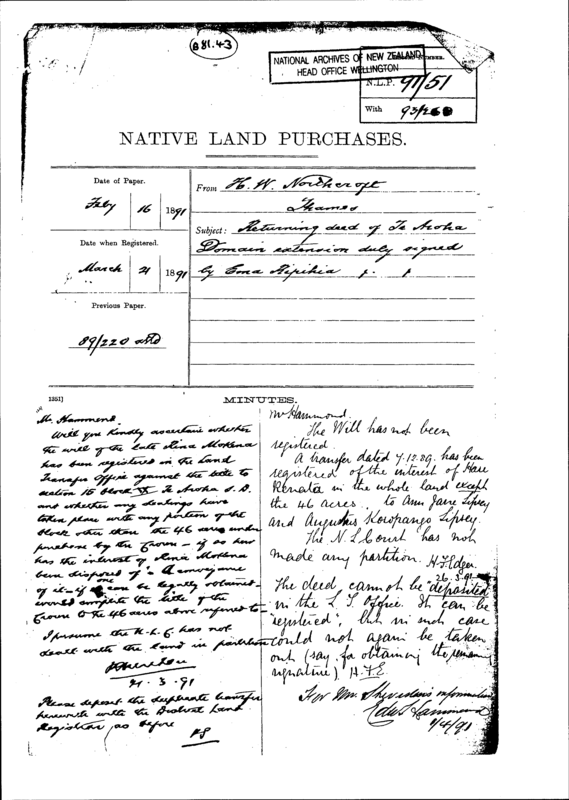 B 81.43
NATIONAL ARCHIVES OF NEW ZEALAND
HEAD OFFICE WELLINGTON
N.L.P. 91/51
With 93/260
NATIVE LAND PURCHASES.
Date of Paper.
Feby 16 1891
Date when Registered.
March 21 1891
Previous Paper.
89/220
From H. W. Northcroft
Thames
Subject: Returning deed of Te Aroha
Domain extension duly signed
by Ema Ripikia
1351]
MINUTES.
Mr. Hammond.
Will you kindly ascertain whether
the will of the late Rina Mokena
has been registered in the Land
Transfer Office against the title to
section 15 block Te Aroha S.D.
and whether any dealings have
taken place with any portion of the
block other than the 46 acres under
purchase by the Crown – if so how
has the interest of Rina Mokena
been disposed of. A conveyance
of it – if one can be legally obtained –
would complete the title of the
Crown to the 46 acres above referred to –
I presume the N.L.C. has not
dealt with the land in partition
21.3.91
Please deposit the duplicate transfer
herewith with the District Land
Registrar as before
PS
Mr Hammond.
The Will has not been
registered.
A transfer dated 7.12.89. has been
registered of the interest of Hare
Renata in the whole land except
the 46 acres. to Ann Jane Lipsey
and Augustus Koropango Lipsey.
The N L Court has not
made any partition. H.F.Edger.
26.3.91
The deed cannot be "deposited"
in the L. T. Office. It can be
"registered", but in such case
could not again be taken
out (say for obtaining the remaining
signature) H.F.E.
For Mr. Sheridan's information
Edw Hammond
1/4/91